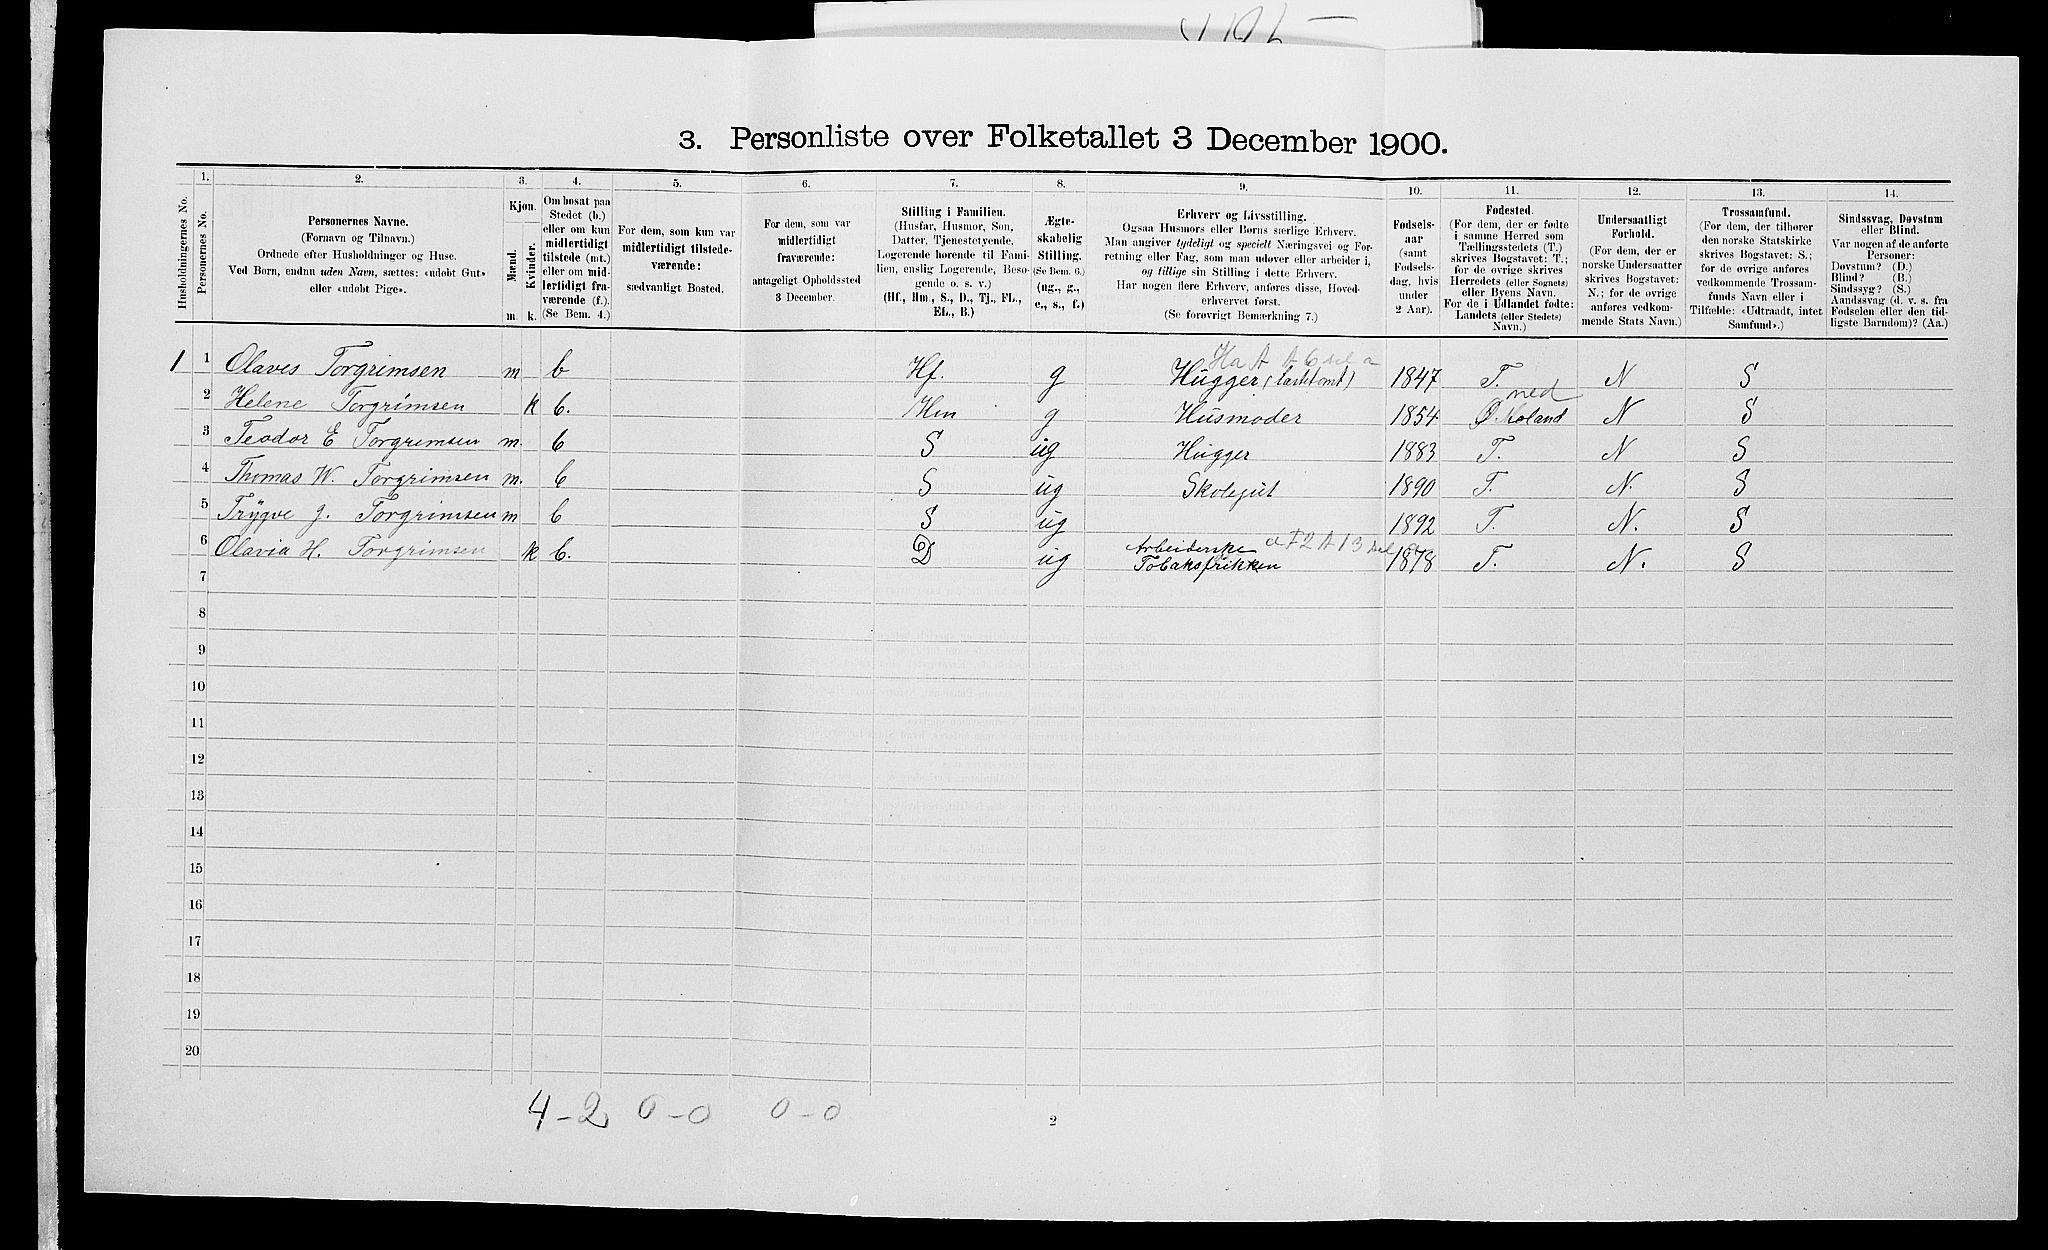 3. Personliste over Folketallet 3 December 1900.
1. 2. 3. 4. 5. 6. 7. 8. 9. 10. 11. 12. 13. 14.
Husholdningernes No.
Personernes No.
Personernes Navne.
(Fornavn og Tilnavn.)
Ordnede efter Husholdninger og Huse.
Ved Børn, endnu uden Navn, sættes: «udøbt Gut»
eller «udøbt Pige».
Kjøn.
Mænd. Kvinder.
m. k.
Om bosat paa
Stedet (b.)
eller om kun
midlertidigt
tilstede (mt.)
eller om mid-
lertidigt fra-
værende (f.).
(Se Bem. 4.)
For dem, som kun var
midlertidigt tilstede-
værende:
sædvanligt Bosted.
For dem, som var
midlertidigt
fraværende:
antageligt Opholdssted
3 December.
Stilling i Familien.
(Husfar, Husmor, Søn,
Datter, Tjenestetyende,
Logerende hørende til Fami-
lien, enslig Logerende, Besø-
gende o. s. v.)
(Hf., Hm., S., D., Tj., FL.,
EL., B.)
Ægte-
skabelig
Stilling.
(Se Bem. 6.)
(ug., g.,
e., s., f.)
Erhverv og Livsstilling.
Ogsaa Husmors eller Børns særlige Erhverv.
Man angiver tydeligt og specielt Næringsvei og For-
retning eller Fag, som man udøver eller arbeider i,
og tillige sin Stilling i dette Erhverv.
Har nogen flere Erhverv, anføres disse, Hoved-
erhvervet først.
(Se forøvrigt Bemærkning 7.)
Fødsels-
aar
(samt
Fødsels-
dag, hvis
under
2 Aar).
Fødested.
(For dem, der er fødte
i samme Herred som
Tællingsstedets (T.)
skrives Bogstavet: T.;
for de øvrige skrives
Herredets (eller Sognets)
eller Byens Navn.
For de i Udlandet fødte:
Landets (eller Stedets)
Navn.)
Undersaatligt
Forhold.
(For dem, der er
norske Undersaatter
skrives Bogstavet:
N.; for de øvrige
anføres vedkom-
mende Stats Navn.)
Trossamfund.
(For dem, der tilhører
den norske Statskirke
skrives Bogstavet: S.;
for de øvrige anføres
vedkommende Trossam-
funds Navn eller i
Tilfælde: «Udtraadt, intet
Samfund».)
Sindssvag, Døvstum
eller Blind.
Var nogen af de anførte
Personer:
Døvstum? (D.)
Blind? (B.)
Sindssyg? (S.)
Aandssvag (d. v. s. fra
Fødselen eller den tid-
ligste Barndom)? (Aa.)
1 1 Olaves Torgrimsen m b Hf. g Hugger 1847 T. N S
2 Helene Torgrimsen k b. Hm g Husmoder 1854 Ø. Moland ned N S
3 Teodor E Torgrimsen m. b S ug Hugger 1883 T. N S
4 Thomas W. Torgrimsen m. b S ug Skolegut 1890 T. N. S
5 Trygve J. Torgrimsen m b S ug 1892 T. N. S
6 Olavia H. Torgrimsen k b. D ug Arbeiderske
Tobaksfrikken 1878 T. N. S
7
8
9
10
11
12
13
14
15
16
17
18
19
20
4-2 0-0 0-0
2